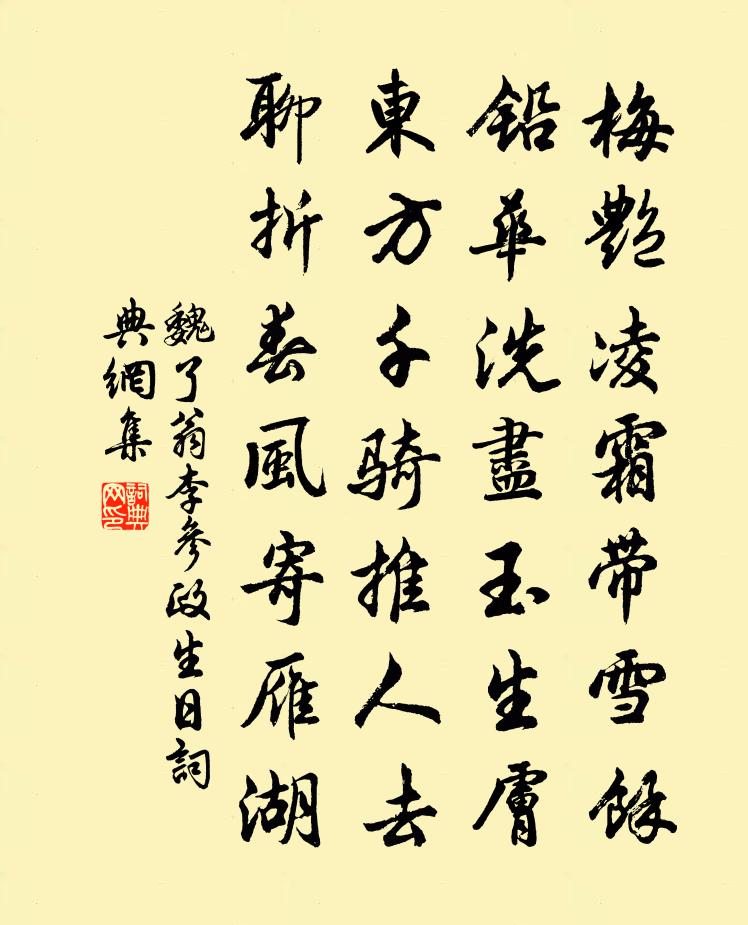 梅艷凌霜帶雪餘
鉛華洗盡玉生膚
東方千騎推人去
聊折春風寄雁湖
魏了翁李參政生日詞
典網集
詞典
网印